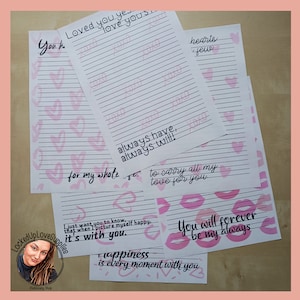 Loved you ye
love you s
You h
hearts
few
xoxo
always have.
always will!
for my whole
to carry all my
love for you
I just want you to know,
that when I picture myself happy,
it's with you.
You will forever
be my always
Happiness
is every moment with you